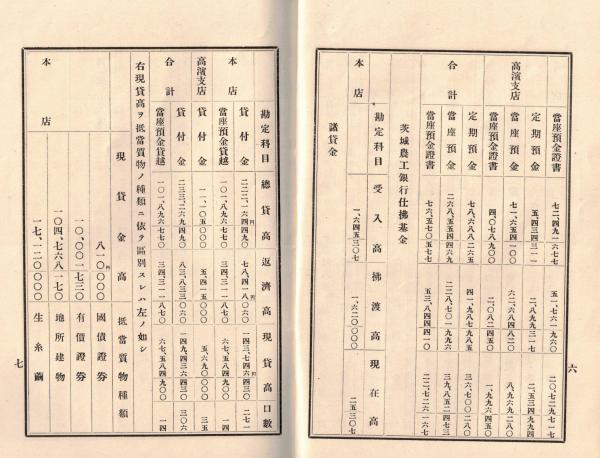 當座預金證書 七二、四九一六七七 五一、七六一九六〇 二〇、七二九七一七
高濱支店
定期預金 五、四三四三一一 二、八九九三一七 二、五三四九九四
當座預金 七一、六五四一〇〇 六二、六八四八二〇 八、九六九二八〇
當座預金證書 四、〇七八九〇〇 二、〇八二四五〇 一、九九六四五〇
合計
定期預金 七八、六八八二六五 四一、九八七九八五 三六、七〇〇二八〇
當座預金 二六八、五五四四四二 二二八、七〇一九六九 三九、八五二四七三
當座預金證書 七六、五七〇五七七 五三、八四四四一〇 二二、七二六一六七
茨城農工銀行仕拂基金
勘定科目 受入高 拂渡高 現在高
本店 一、六四五三〇七 一、六二〇〇〇〇 二五三〇七
諸貸金
六
勘定科目 總貸高 返濟高 現貸高 口數
本店
貸付金 二二二、一六四四九〇 七八、四一八〇六〇 一四三、七四六四三〇 二七一
當座預金貸越 一〇一、八九六七七〇 三四、三一一八七〇 六七、五八四九〇〇 一四
高濱支店
貸付金 一一、一〇五〇〇〇 五、四一五〇〇〇 五、六九〇〇〇〇 三五
合計
貸付金 二三三、二六九四九〇 八三、八三三〇六〇 一四九、四三六四三〇 三〇六
當座預金貸越 一〇一、八九六七七〇 三四、三一一八七〇 六七、五八四九〇〇 一四
右現貸高ヲ抵當質物ノ種類ニ依テ區別スレハ左ノ如シ
現貸金高 抵當質物種類
本店
八一〇〇〇〇 國債證券
一〇、〇〇一七三〇 有價證券
一〇四、七六八一七〇 地所建物
一七、一二〇〇〇〇 生糸繭
七